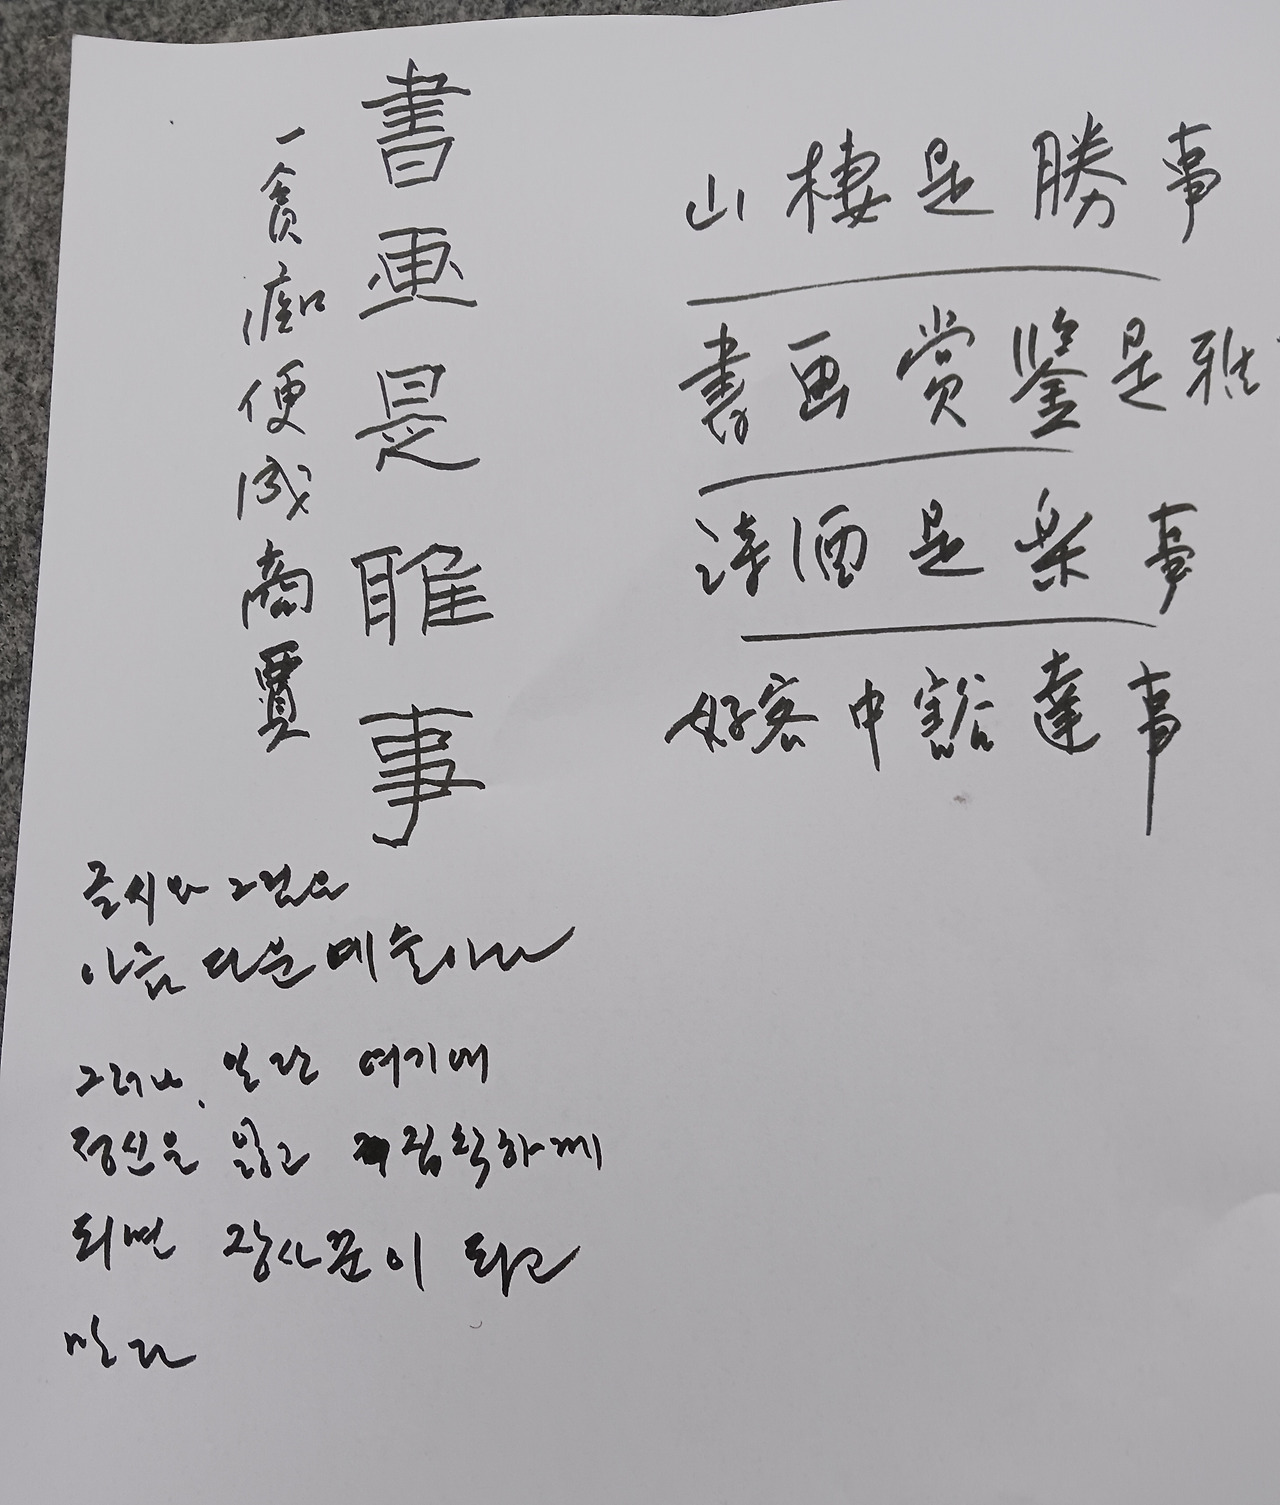 書画是雅事
一貪癡便成商賈
山棲是勝事
書画賞鑒是雅
詩酒是樂事
好客中豁達事
글씨와 그림은
아름다운 예술이나
그러나, 일단 여기에
정신을 잃고 집착하게
되면 장사꾼이 되고
만다